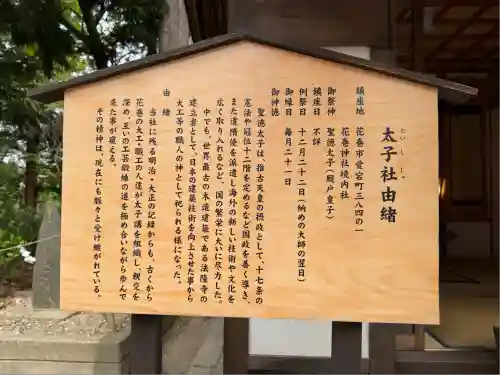 たいししゃ
太子社由緒
鎮座地　花巻市愛宕町三八四の一
花巻神社境内社
御祭神　聖徳太子（厩戸皇子）
鎮座日　不詳
例祭日　十二月二十二日（納めの大師の翌日）
御縁日　毎月二十一日
御神徳
聖徳太子は、推古天皇の摂政として、十七条の
憲法や冠位十二階を定めるなど国政を善く導き、
また遣隋使を派遣し海外の新しい技術や文化を
広く取り入れるなど、国の繁栄に大いに尽力した。
中でも、世界最古の木造建築である法隆寺の
建立者として、日本の建築技術を向上させた事から
大工等の職人の神として祀られる様になった。
由緒
当社に残る明治・大正の記録からも、古くから
花巻の大工・職工の人達が太子講を組織し親交を
深め、互いの工芸鍛錬の道を極め合いながら歩んで
来た事が窺える。
その精神は、現在にも脈々と受け継がれている。